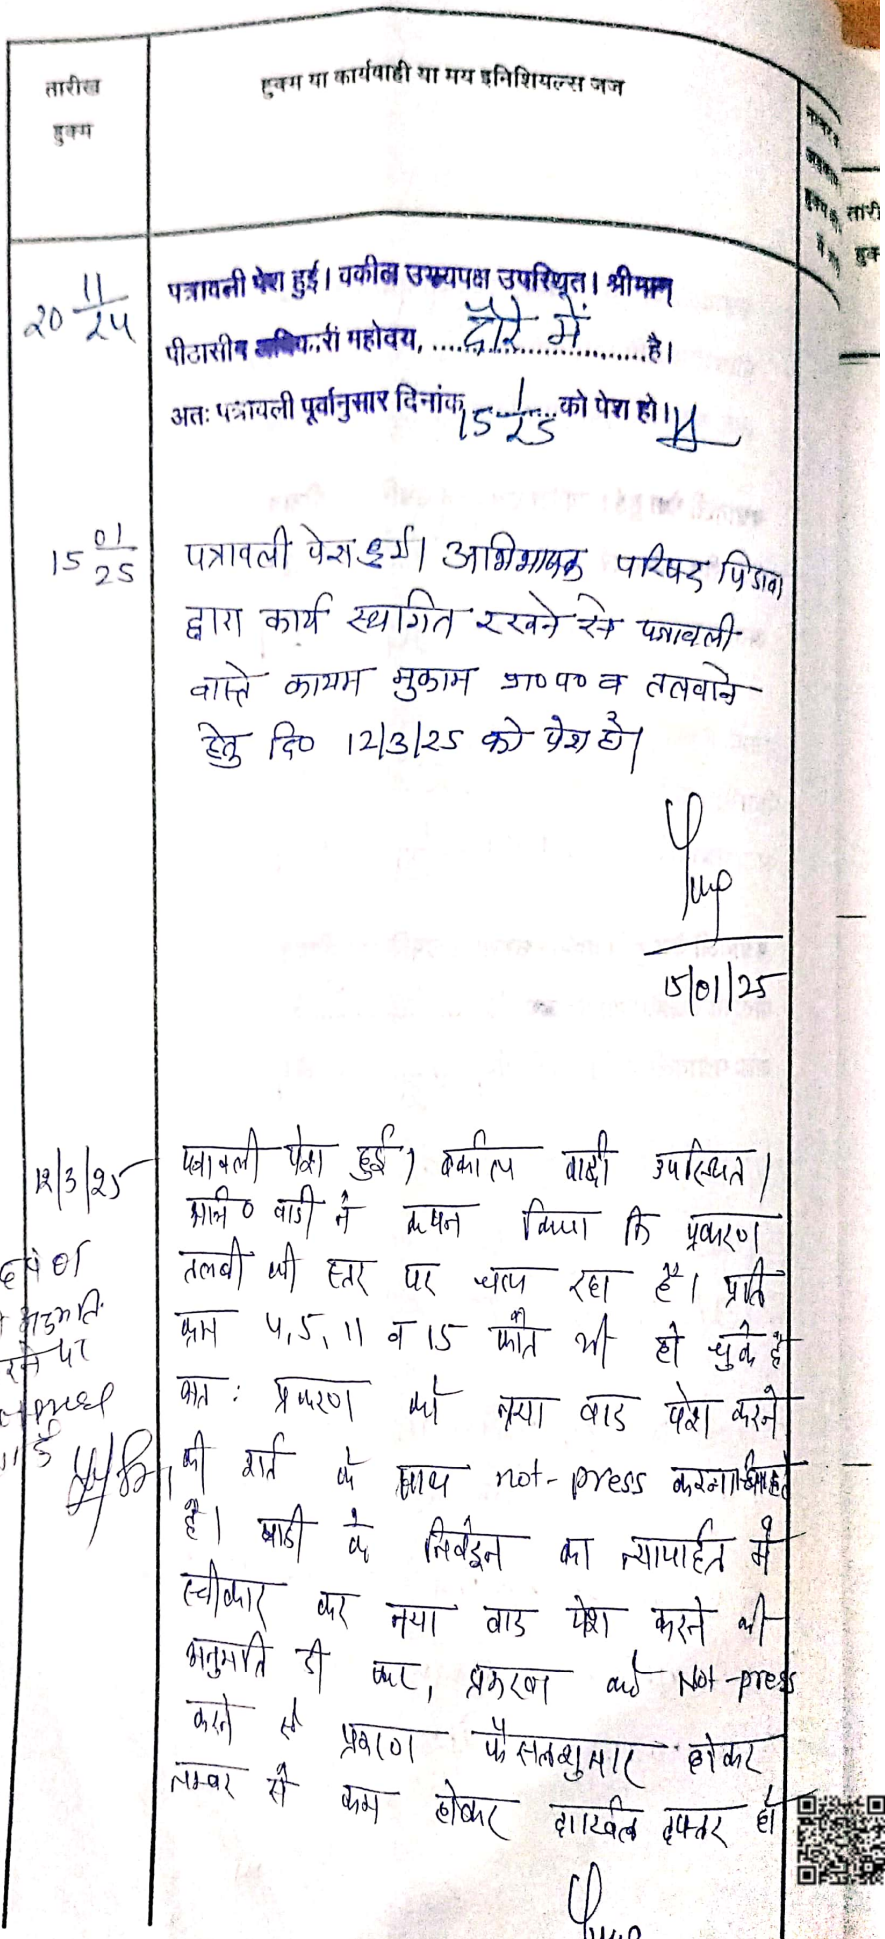 तारीख
हुक्म
हुक्म या कार्यवाही या मय इनिशियल्स जज
तारी
हुक
20 11/24
पत्रावली पेश हुई। वकील उभयपक्ष उपस्थित। श्रीमान्
पीठासीन अधिकारी महोदय, दौरे में है।
अतः पत्रावली पूर्वानुसार दिनांक 15 1/25 को पेश हो।
15 01/25
पत्रावली पेश हुई। अभिभाषक परिषद पिडावा
द्वारा कार्य स्थगित रखने से पत्रावली
वास्ते कायम मुकाम प्रा० प० व तलवाने
हेतु दि० 12/3/25 को पेश हो।
15/01/25
12/3/25
पत्रावली पेश हुई। वकील वादी उपस्थित।
अभि० वादी ने कथन किया कि प्रकरण
तलबी की स्तर पर चल रहा है। प्रति
क्रम 4, 5, 11 व 15 फौत भी हो चुके है
अत: प्रकरण को नया वाद पेश करने
की शर्त के साथ not-press करना चाहते
है। वादी के निवेदन का न्यायहित में
स्वीकार कर नया वाद पेश करने की
अनुमति दी जाकर, प्रकरण को Not-press
करने से प्रकरण फैसलशुमार होकर
नम्बर से कम होकर दाखिल दफ्तर हो